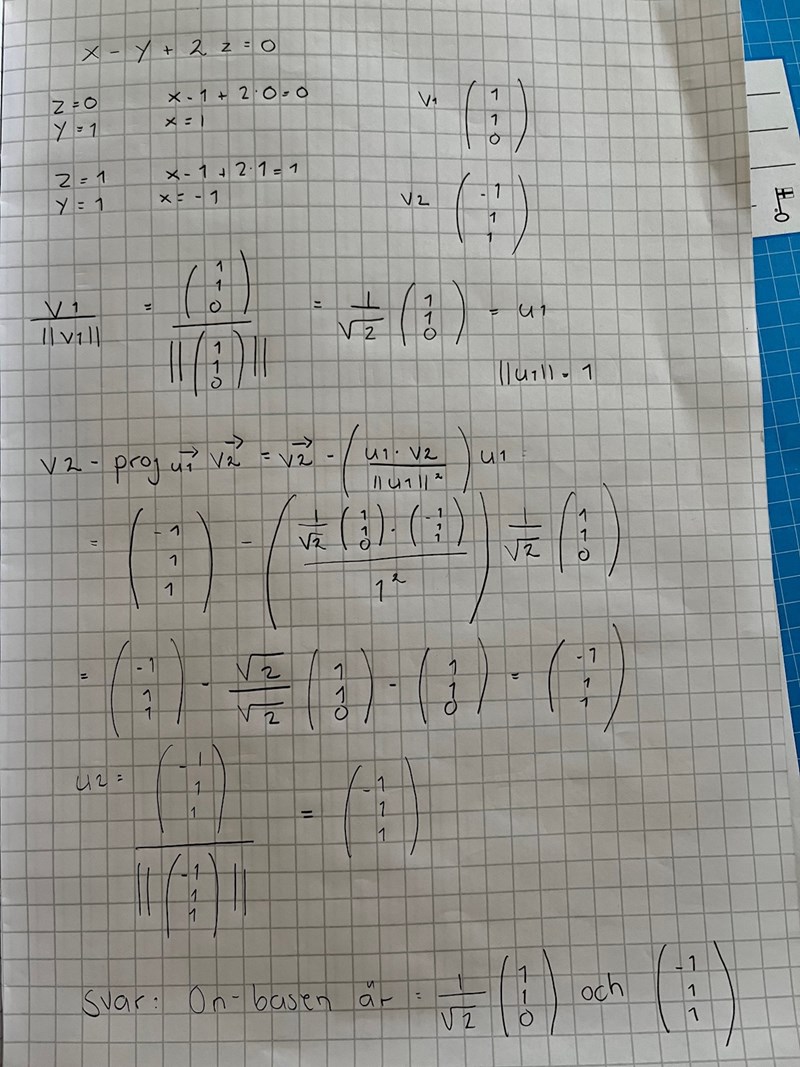 x - y + 2 z = 0
z = 0 x - 1 + 2·0 = 0 v1 (1 1 0)
y = 1 x = 1
z = 1 x - 1 + 2·1 = 1 v2 (-1 1 1)
y = 1 x = -1
v1 / ||v1|| = (1 1 0) / ||(1 1 0)|| = 1/√2 (1 1 0) = u1
||u1|| = 1
v2 - proj u1→ v2→ = v2→ - (u1 · v2 / ||u1||²) u1 =
= (-1 1 1) - (1/√2 (1 1 0) · (-1 1 1) / 1²) 1/√2 (1 1 0)
= (-1 1 1) - √2/√2 (1 1 0) - (1 1 0) = (-1 1 1)
u2 = (-1 1 1) / ||(-1 1 1)|| = (-1 1 1)
Svar: On-basen är = 1/√2 (1 1 0) och (-1 1 1)